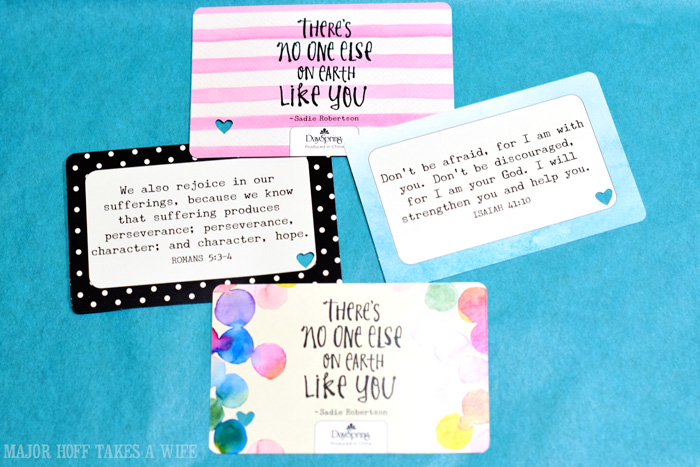 THERE'S
NO ONE ELSE
ON EARTH
LIKE YOU
~Sadie Robertson
DaySpring
Produced in China
We also rejoice in our
sufferings, because we know
that suffering produces
perseverance; perseverance,
character; and character, hope.
ROMANS 5:3-4
Don't be afraid, for I am with
you. Don't be discouraged,
for I am your God. I will
strengthen you and help you.
ISAIAH 41:10
THERE'S
NO ONE ELSE
ON EARTH
LIKE YOU
~Sadie Robertson
DaySpring
Produced in China
MAJOR HOFF TAKES A WIFE